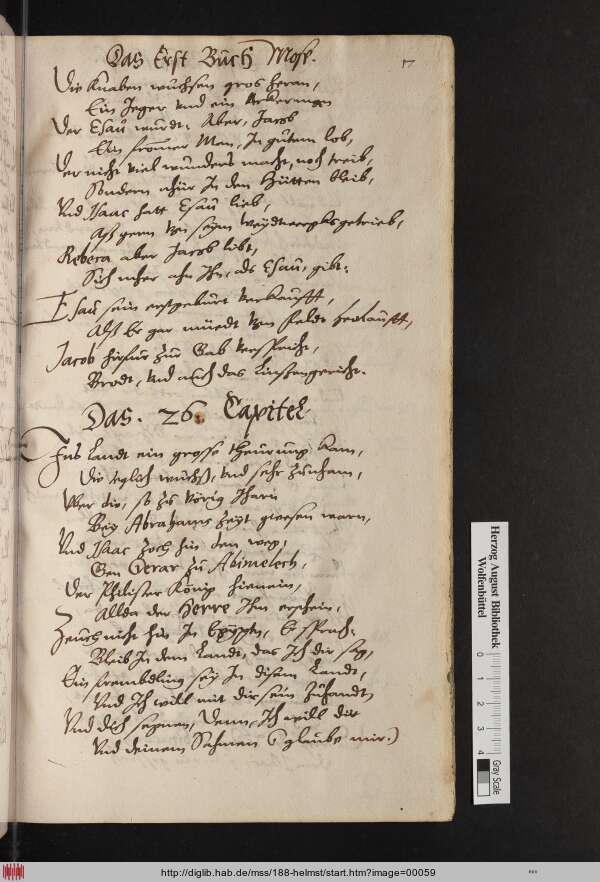 Das Erst Buch Mose.
17
Die Knaben wuchsen gros heran,
Ein Jeger und ein Ackerman
Der Esau wurdt. Aber, Jacob
Ein fromer Man, In gutem lob,
Der nicht viel wunders macht, noch treib,
Sondern nhur In den Hütten bleib,
Und Isaac hatt Esau lieb,
Ass gern von seym
Rebeca aber Jacob libt,
Sich mher ahn Ihn, als Esau, gibt.
Esau sein erstgeburt verkaufft,
Alss Er gar müedt vom feldt herlaufft,
Jacob hirfur zur Gab verspricht,
Brodt, und auch das Linsengericht.
Das. 26. Capitel
Ins Landt ein grosse theurung kam,
Die teglich wuchss, und sehr zunham,
Uber die, so zu vorig Jharn
Bey Abrahams Zeyt gwesen warn,
Und Isaac zoch hin den weg,
Gen Gerar zu Abimelech,
Der Philister König hienein,
Allda der Herre Ihm erschein,
Zeuch nicht hin In Egypten, Er sprach.
Bleib In dem Landt, das Ich dir sag,
Ein frembdling sey In disem Landt,
Und Ich will mit dir sein Zuhandt,
Und dich segnen, Denn, Ich will dir
Und deinem Sahmen (glaube mir.)
Herzog August Bibliothek
Wolfenbüttel
0 1 2 3 4
Gray Scale
http://diglib.hab.de/mss/188-helmst/start.htm?image=00059